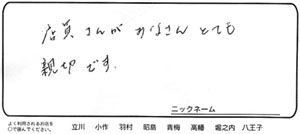 店員さんが みなさん とても
親切です。
ニックネーム
よく利用されるお店を
○で囲んでください。
立川 小作 羽村 昭島 青梅 高幡 堀之内 八王子